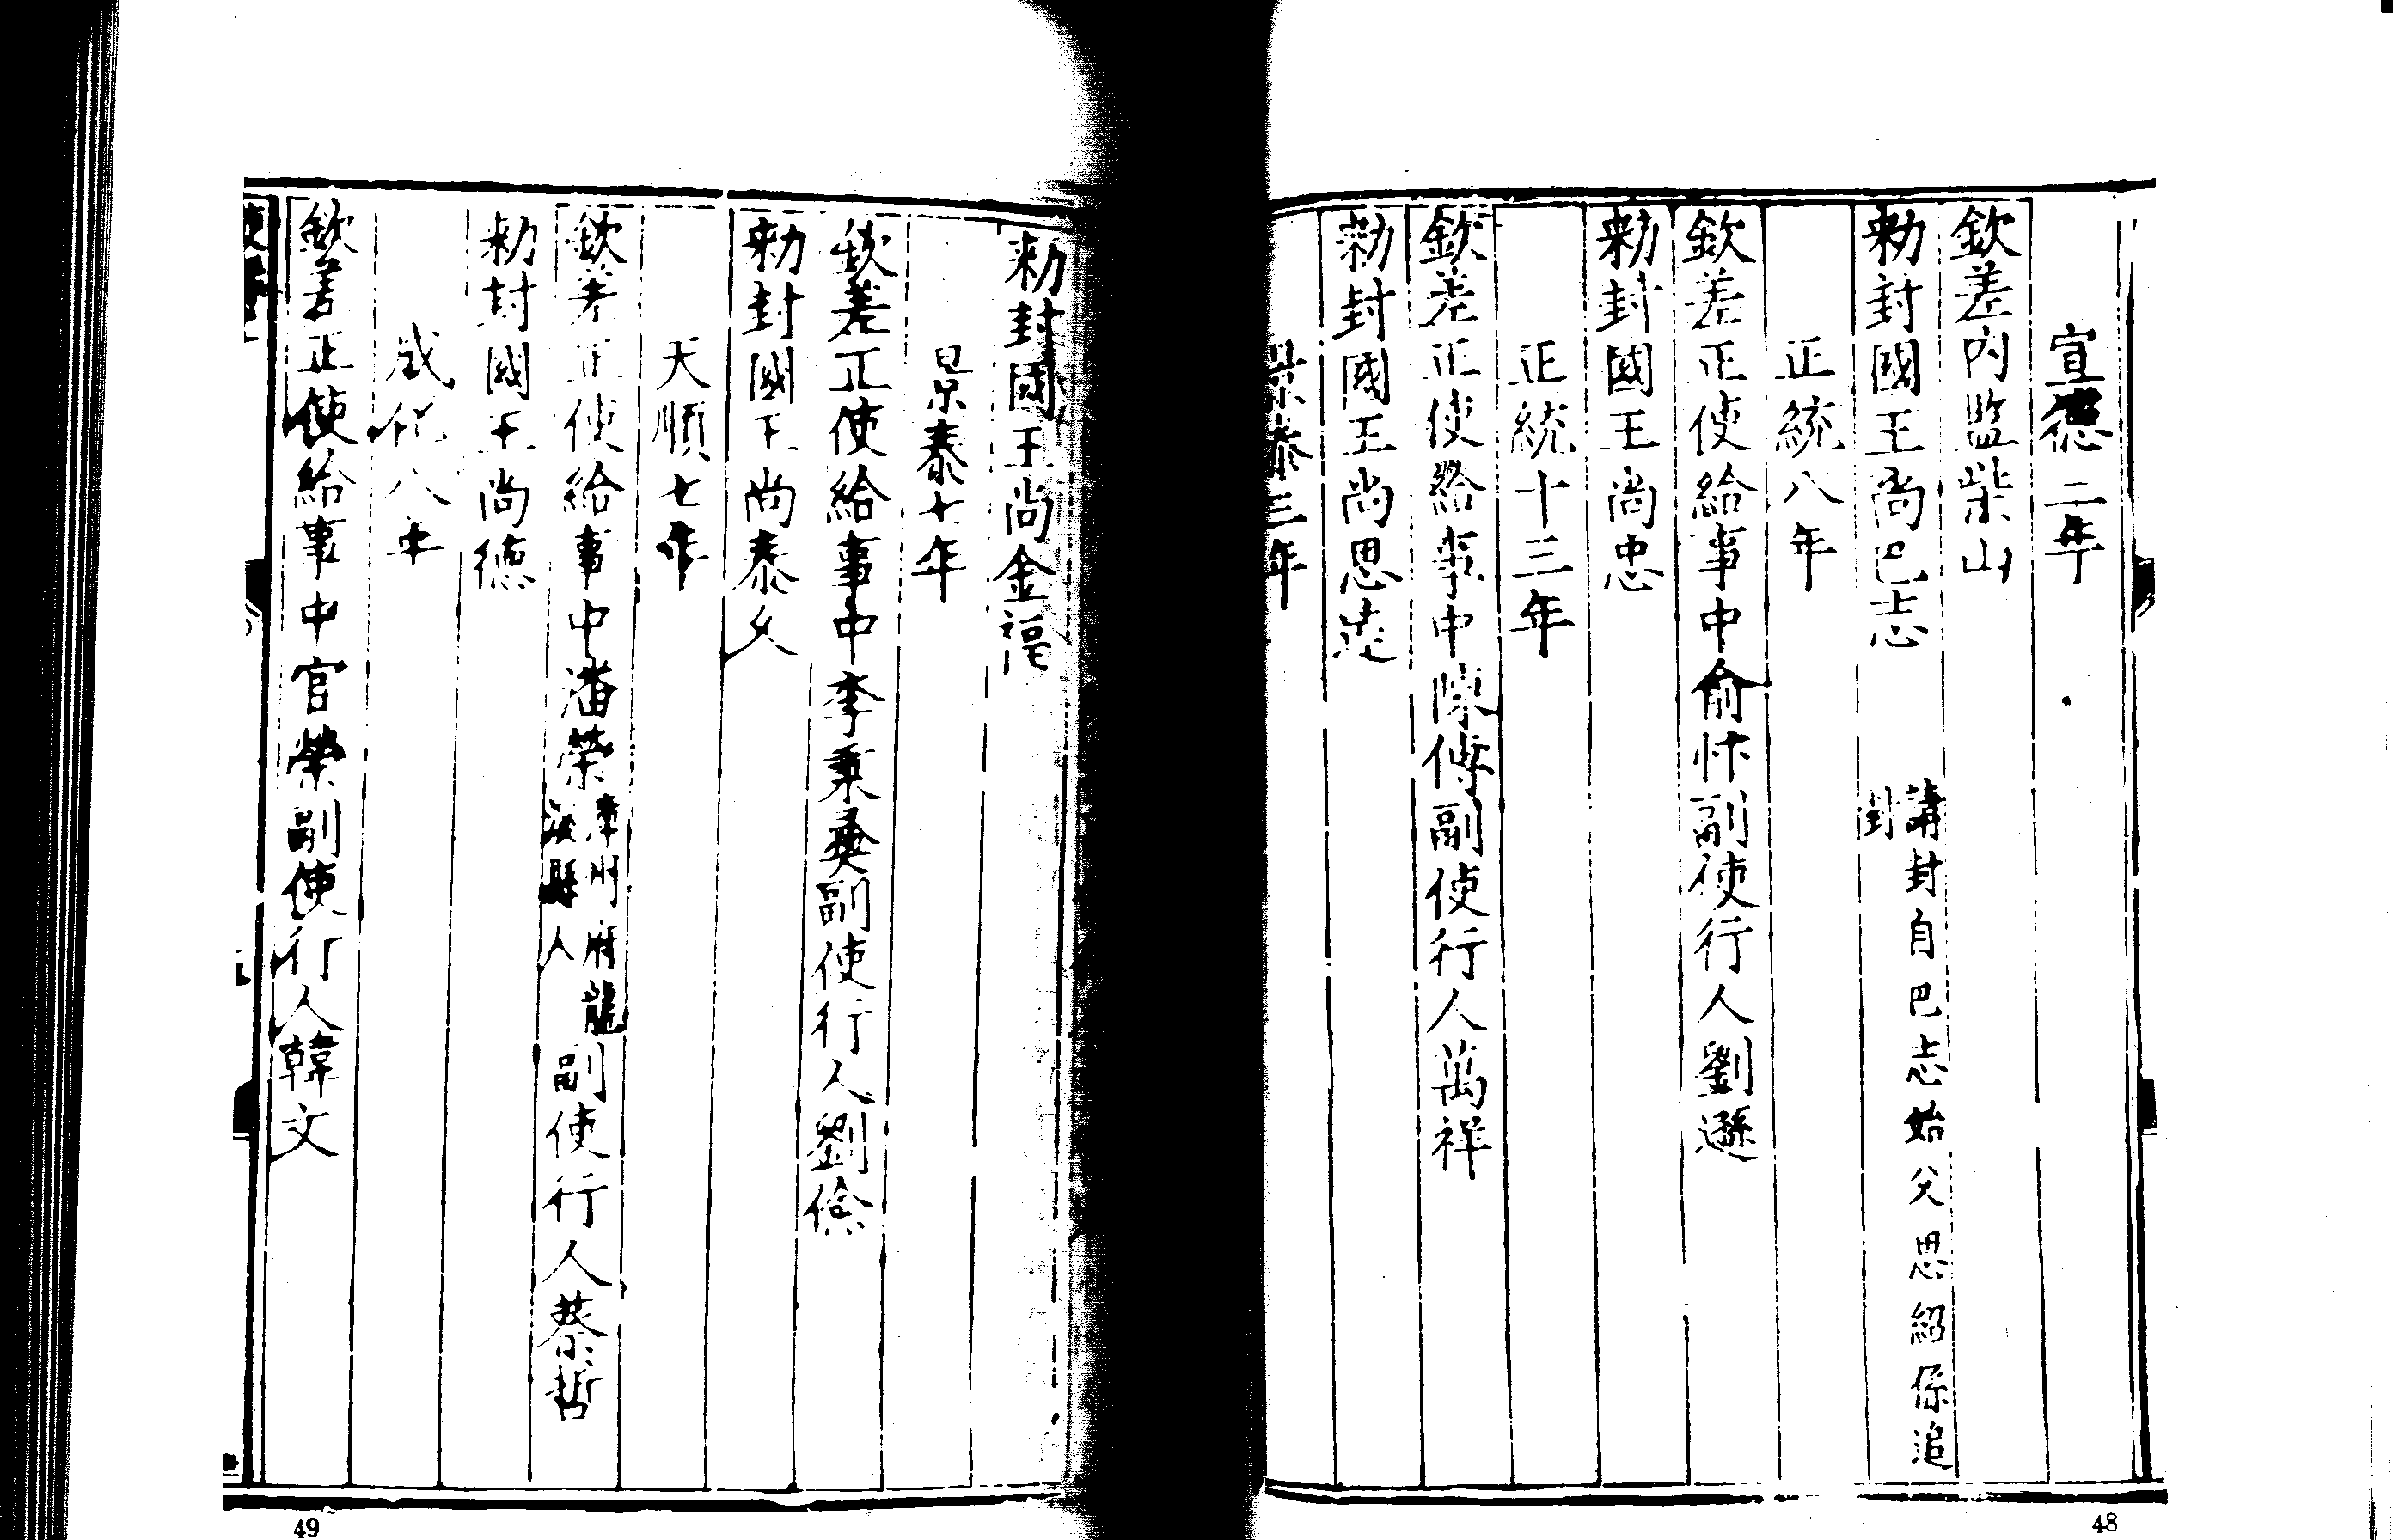 宣德二年
欽差內監柴山
勑封國王尚巴志
請封自巴志始父思紹係追
封
正統八年
欽差正使給事中俞忭副使行人劉遜
勑封國王尚忠
正統十三年
欽差正使給事中陳傅副使行人萬祥
勑封國王尚思達
景泰三年
勑封國王尚金福
景泰七年
欽差正使給事中李秉彜副使行人劉儉
勑封國王尚泰久
天順七年
欽差正使給事中潘榮
漳州府龍
溪縣人
副使行人蔡哲
勑封國王尚德
成化八年
欽差正使給事中官榮副使行人韓文
48
49